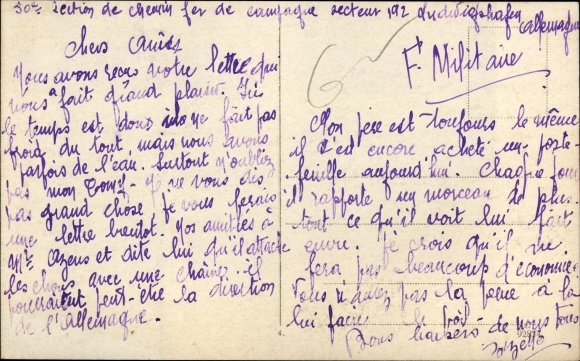 50e Section de chemin fer de campagne secteur 192 Ludwigshafen
Allemagne
Chers Amies
Nous avons reçus votre lettre qui
nous a fait grand plaisir. Ici
le temps est doux il ne fait pas
froid du tout, mais nous avons
parfois de l'eau. Surtout n'oubliez
pas mon Tony. Je ne vous dis
pas grand chose, je vous ferais
une lettre bientot. Nos amitiés à
Mr Azens et dite lui qu'il attache
les choux avec une chaine. il
pourraient peut-être la direction
de l'Allemagne.
F. Militaire
Mon père est toujours le même
il s'est encore acheté un porte-
feuille aujourd'hui. Chaque jour
il rapporte un morceau de plus.
tout ce qu'il voit lui fait
envie. Je crois qu'il ne
fera pas beaucoup d'économies
Vous n'avez pas la peine à la
lui faire
Bons baisers de nous trois